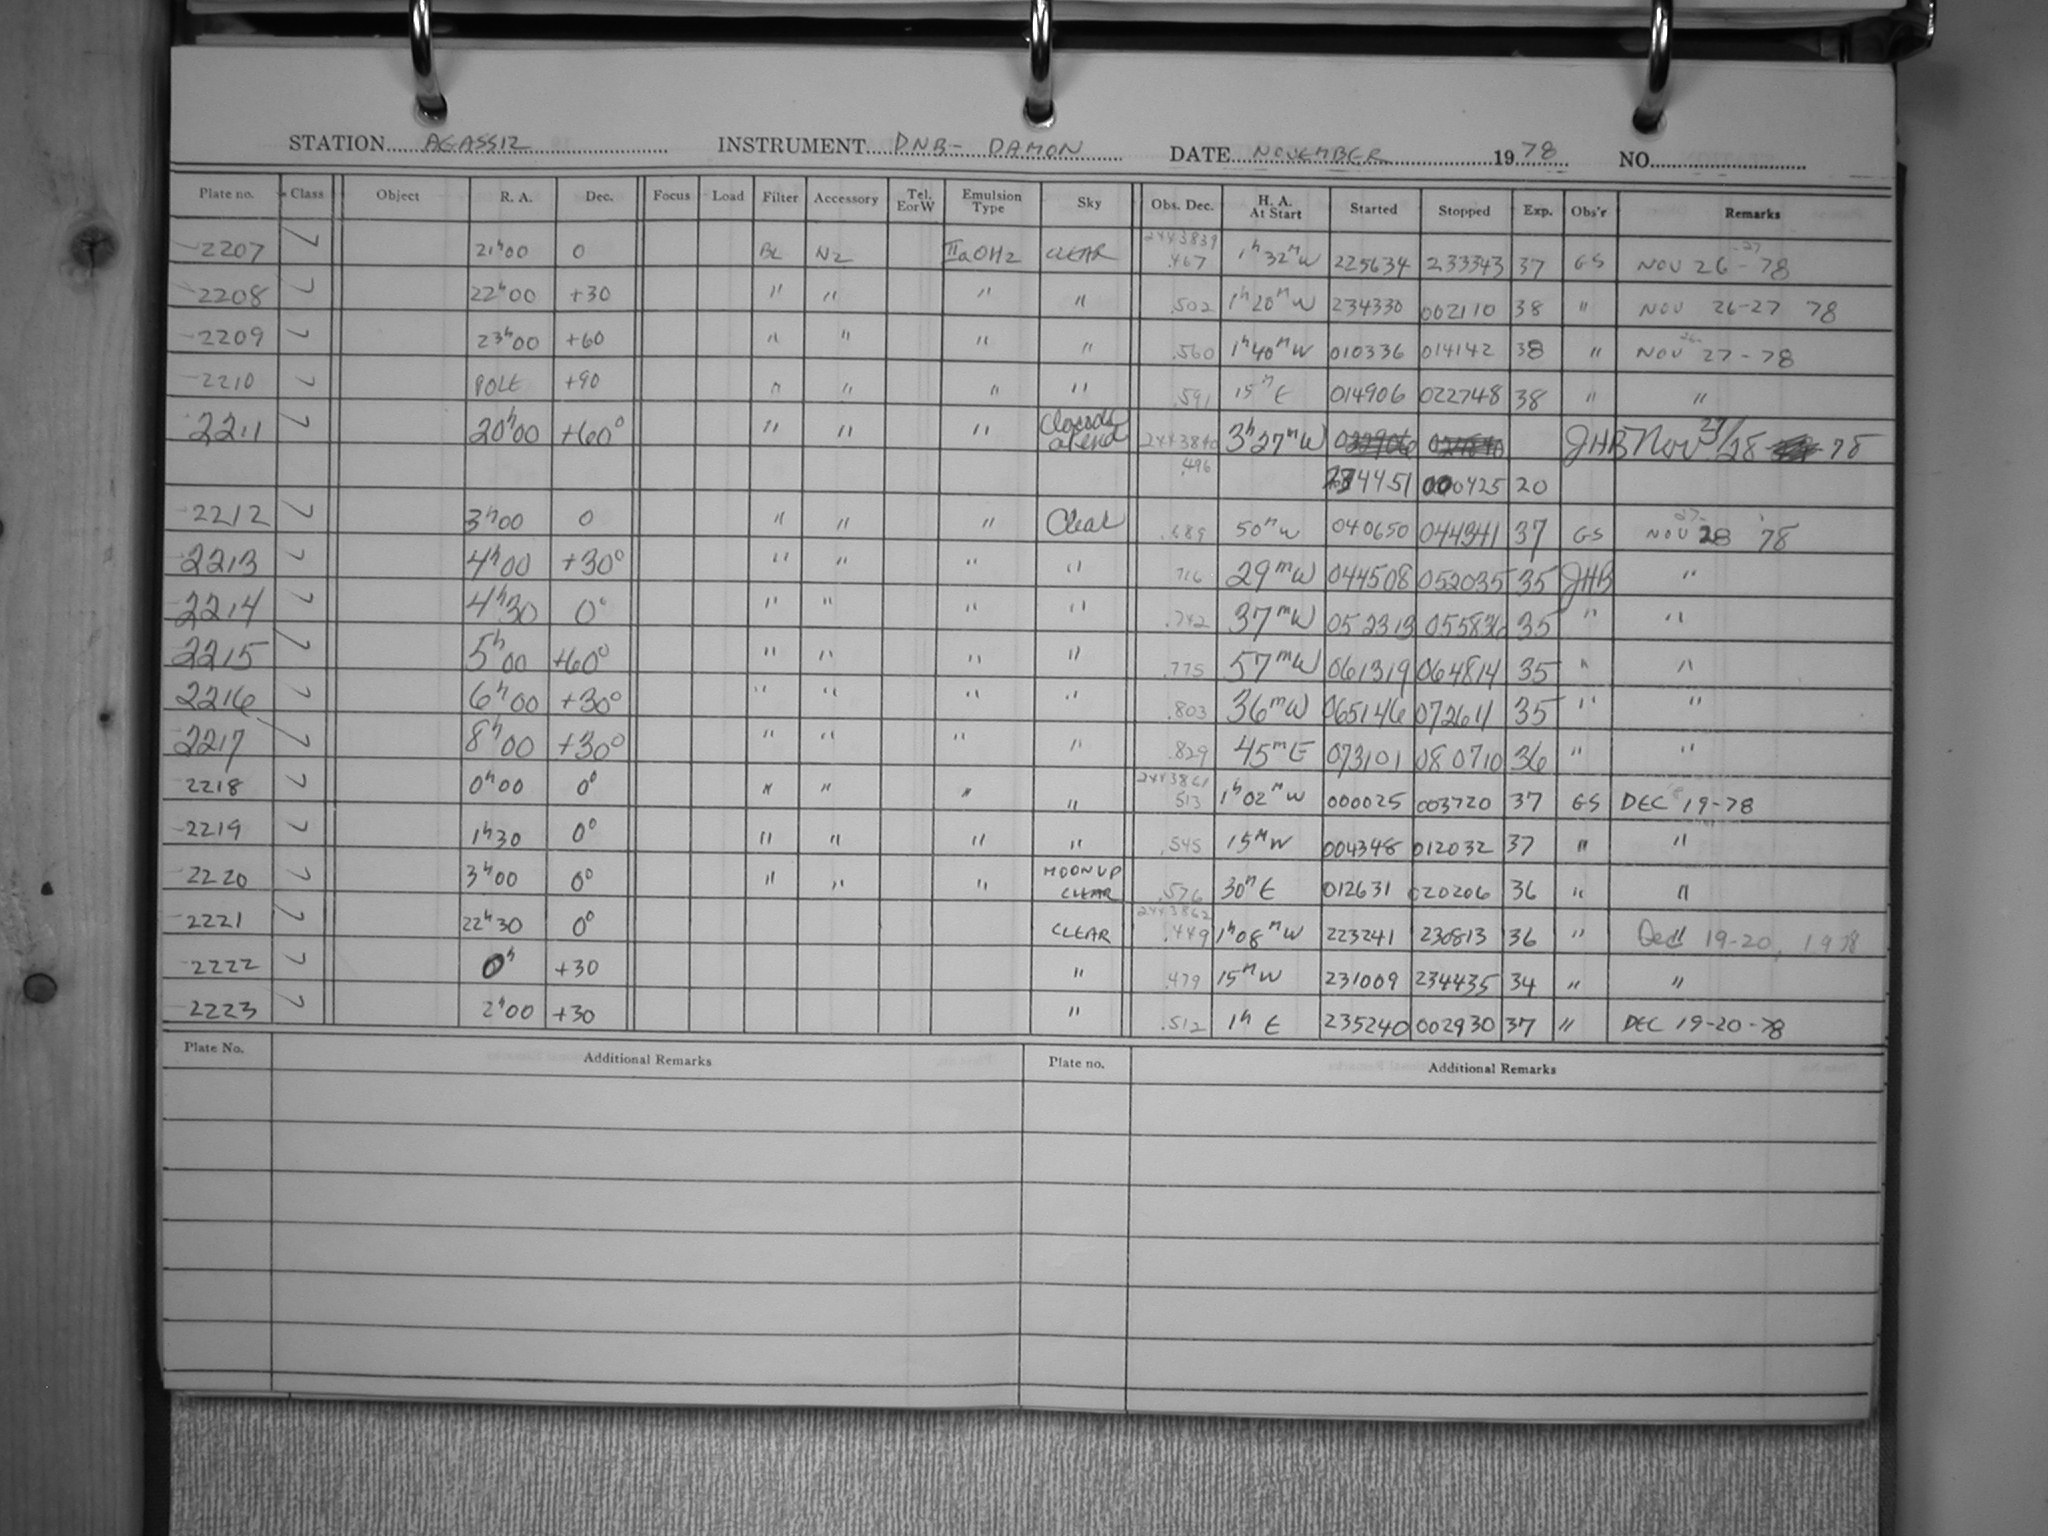 STATION AGASSIZ INSTRUMENT DNB- DAMON DATE NOVEMBER 1978 NO.
Plate no. Class Object R. A. Dec. Focus Load Filter Accessory Tel. EorW Emulsion Type Sky Obs. Dec. H. A. At Start Started Stopped Exp. Obs'r Remarks
2207 7 21h00 0 BL N2 IIaOH2 CLEAR 2443839 .467 1h32mW 225634 233343 37 GS NOV 26-27-78
2208 7 22h00 +30 " " " " .502 1h20mW 234330 002110 38 " NOV 26-27 78
2209 7 23h00 +60 " " " " .560 1h40mW 010336 014142 38 " NOV 26-27-78
2210 7 POLE +90 " " " " .591 15mE 014906 022748 38 " "
2211 7 20h00 +60° " " " at end 2443840 3h27mW JHB Nov 27/28 78
.496 234451 000425 20
2212 7 3h00 0 " " " Clear .689 50mW 040650 044341 37 GS NOV 27-28 78
2213 7 4h00 +30° " " " " .716 29mW 044508 052035 35 JHB "
2214 7 4h30 0° " " " " .742 37mW 052313 055836 35 " "
2215 7 5h00 +60° " " " " .775 57mW 061319 064814 35 " "
2216 7 6h00 +30° " " " " .803 36mW 065146 072611 35 " "
2217 7 8h00 +30° " " " " .829 45mE 073101 080710 36 " "
2218 7 0h00 0° " " " " 2443861 .513 1h02mW 000025 003720 37 GS DEC 19-78
2219 7 1h30 0° " " " " .545 15mW 004348 012032 37 " "
2220 7 3h00 0° " " " MOON UP CLEAR .576 30mE 012631 020206 36 " "
2221 7 22h30 0° CLEAR 2443862 .449 1h08mW 223241 230813 36 " Dec 19-20, 1978
2222 7 0h +30 " .479 15mW 231009 234435 34 " "
2223 7 2h00 +30 " .512 1hE 235240 002930 37 " DEC 19-20-78
Plate No. Additional Remarks Plate no. Additional Remarks